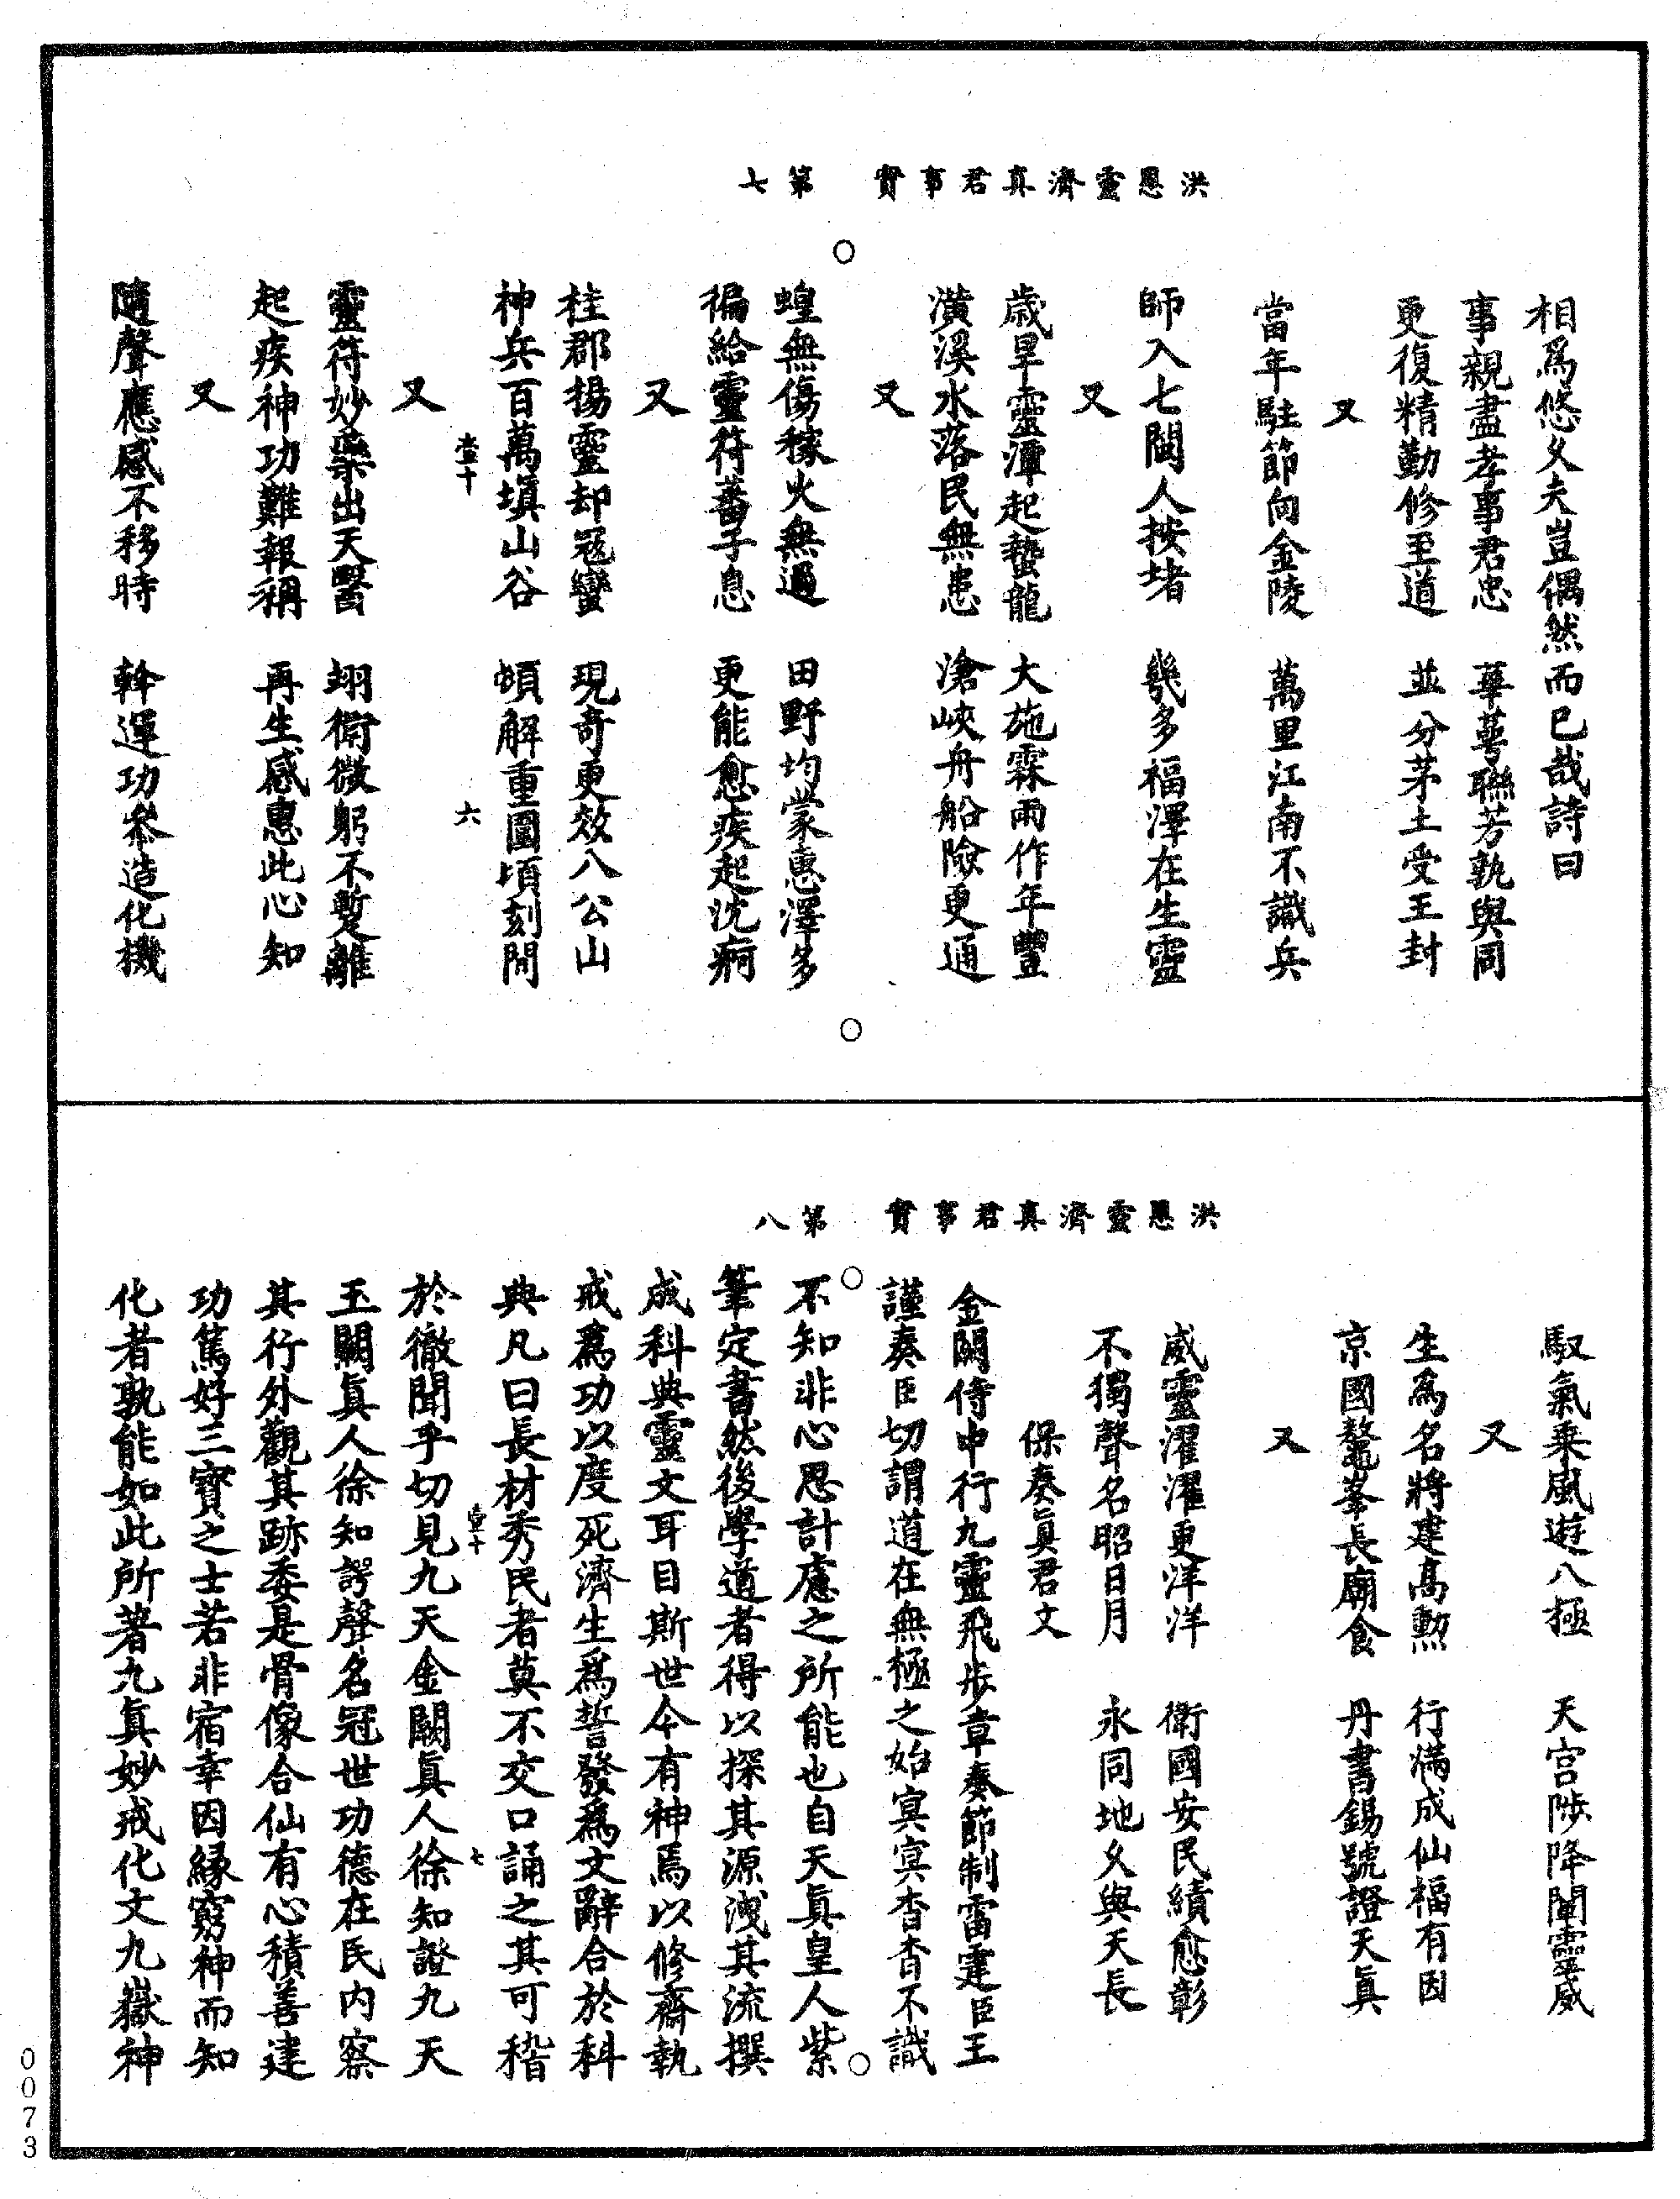 洪恩靈濟真君事實　第七
相爲悠久夫豈偶然而已哉詩曰
事親盡孝事君忠　華萼聯芳孰與同
更復精勤修至道　並分茅土受王封
又
當年駐節向金陵　萬里江南不識兵
師入七閩人按堵　幾多福澤在生靈
又
歲旱靈潭起蟄龍　大施霖雨作年豐
潢溪水落民無患　滄峽舟船險更通
又
蝗無傷稼火無過　田野均蒙惠澤多
徧給靈符蕃子息　更能愈疾起沈痾
又
桂郡揚靈却寇蠻　現奇更效八公山
神兵百萬塡山谷　頓解重圍頃刻間
壹十　六
又
靈符妙藥出天醫　翊衛微躬不蹔離
起疾神功難報稱　再生感惠此心知
又
隨聲應感不移時　幹運功叅造化機
洪恩靈濟真君事實　第八
馭氣乗風遊八極　天宫陟降闡靈威
又
生爲名將建高勲　行滿成仙福有因
京國鼇峯長廟食　丹書錫號證天眞
又
威靈濯濯更洋洋　衛國安民績愈彰
不獨聲名昭日月　永同地久與天長
保奏眞君文
金闕侍中行九靈飛步章奏節制雷霆臣王
謹奏臣切謂道在無極之始冥冥杳杳不識
不知非心思計慮之所能也自天眞皇人紫
筆定書然後學道者得以探其源洩其流撰
成科典靈文耳目斯世今有神焉以修齋執
戒爲功以度死濟生爲誓發爲文辭合於科
典凡曰長材秀民者莫不交口誦之其可稽
壹十　七
於徹聞乎切見九天金闕眞人徐知證九天
玉闕眞人徐知諤聲名冠世功德在民内察
其行外觀其跡委是骨像合仙有心積善建
功篤好三寶之士若非宿幸因縁窮神而知
化者孰能如此所著九眞妙戒化文九嶽神
0073